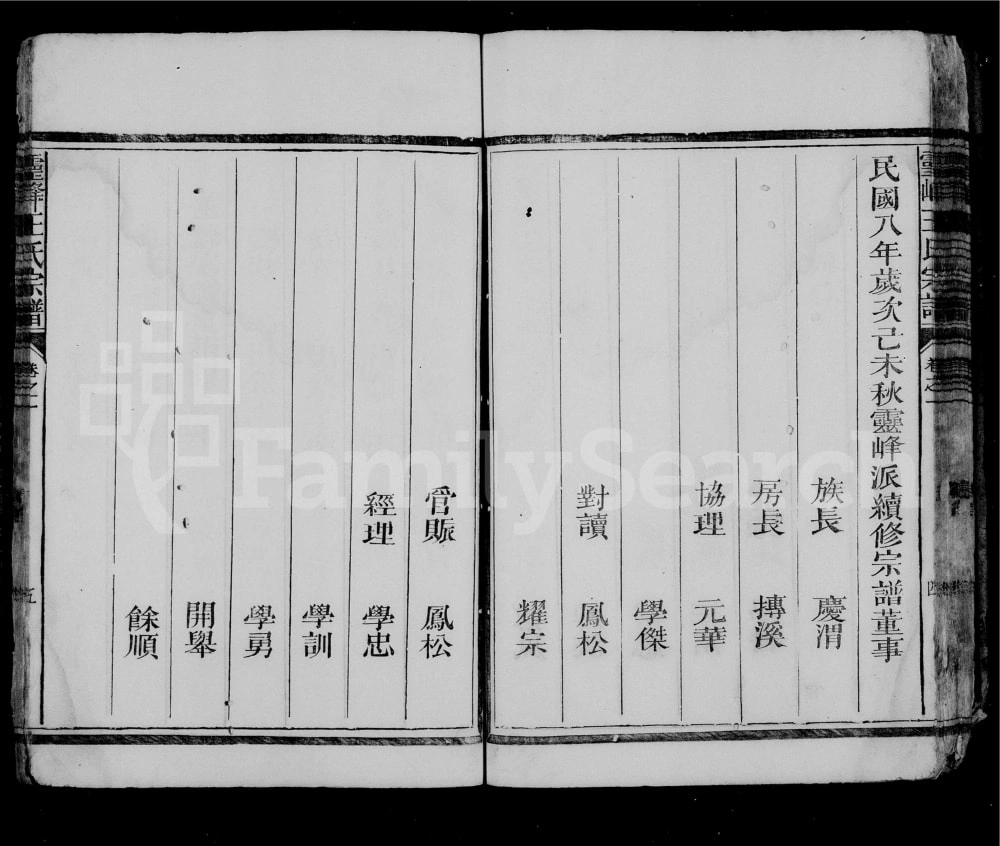 民國八年歲次己未秋靈峰派續修宗譜董事
族長 慶渭
房長 摶溪
協理 元華
學傑
對讀 鳳松
耀宗
管賬 鳳松
經理 學忠
學訓
學勇
開舉
餘順
靈峰王氏宗譜 卷之一 四
靈峰王氏宗譜 卷之一 五
FamilySearch